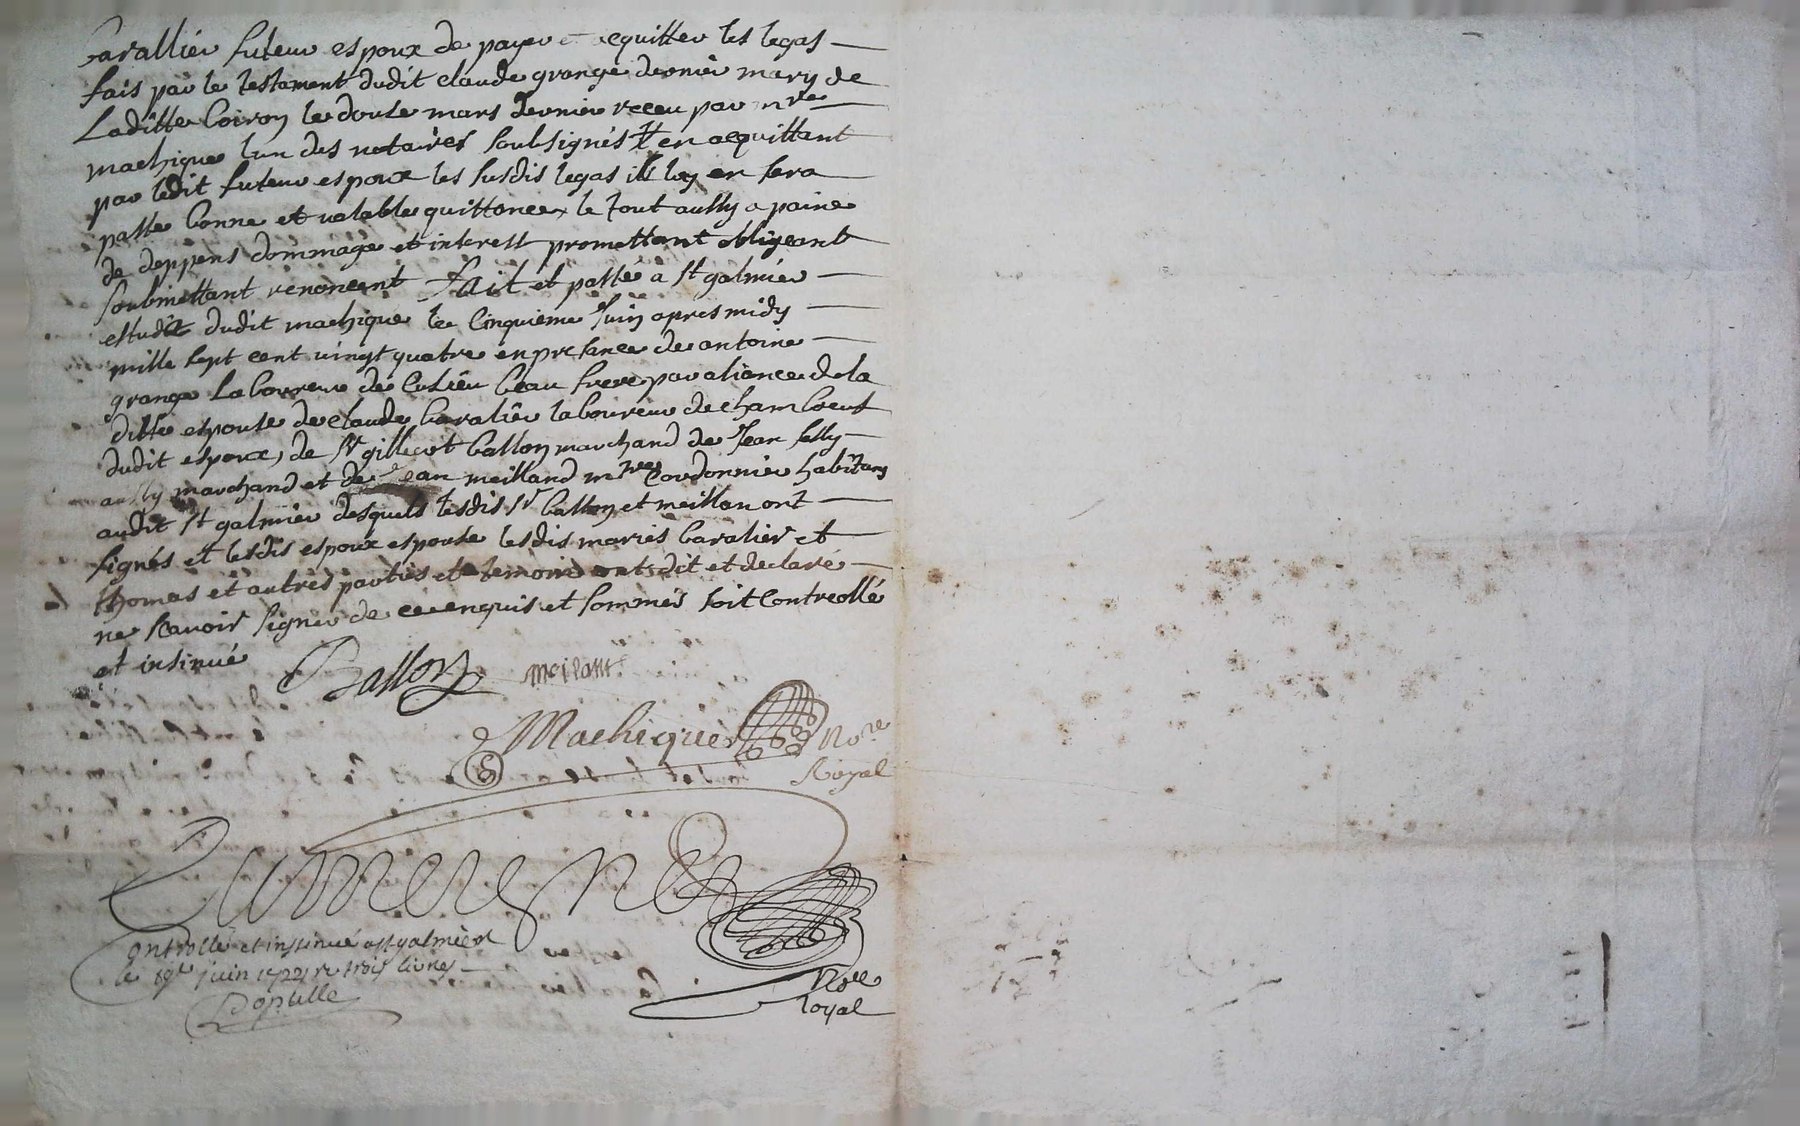 Cavallier futeur espoux de payer et acquitter les legas
fais par le testament dudit claude grange dernier mary de
Laditte Coiron le douse mars dernier receu par mre
machique lun des notaires soubsignés et en acquittant
par ledit futeur espoux les susdis legas il luy en sera
passe bonne et valable quittance le tout aussy a paine
de deppens dommage et interest promettant obligeant
soubmettant renonceant fait et passé a st galmier
estudit dudit machique le cinquieme juin apres midy
mille sept cent vingt quatre en presance de antoine
grange laboureur de Cusieu beau frere par aliance de la
ditte espouse de claude Cavalier laboureur de chambeuf
dudit espoux, de sr gillecot Ballon marchand de Jean
aussy marchand et de Jean meilland mtre Cordonnier habitans
audit st galmier desquels lesdis sr ballon et meillan ont
signés et lesdis espoux espouse lesdis mariés Cavalier et
thomas et autres parties et temoins ont dit et declaré
ne scavoir signer de ce enquis et sommés soit controllé
et insinué
Ballon meilant
Machiquer Nore
Royal
Nore
Royal
Controllé et insinué a st galmier
le juin trois livres